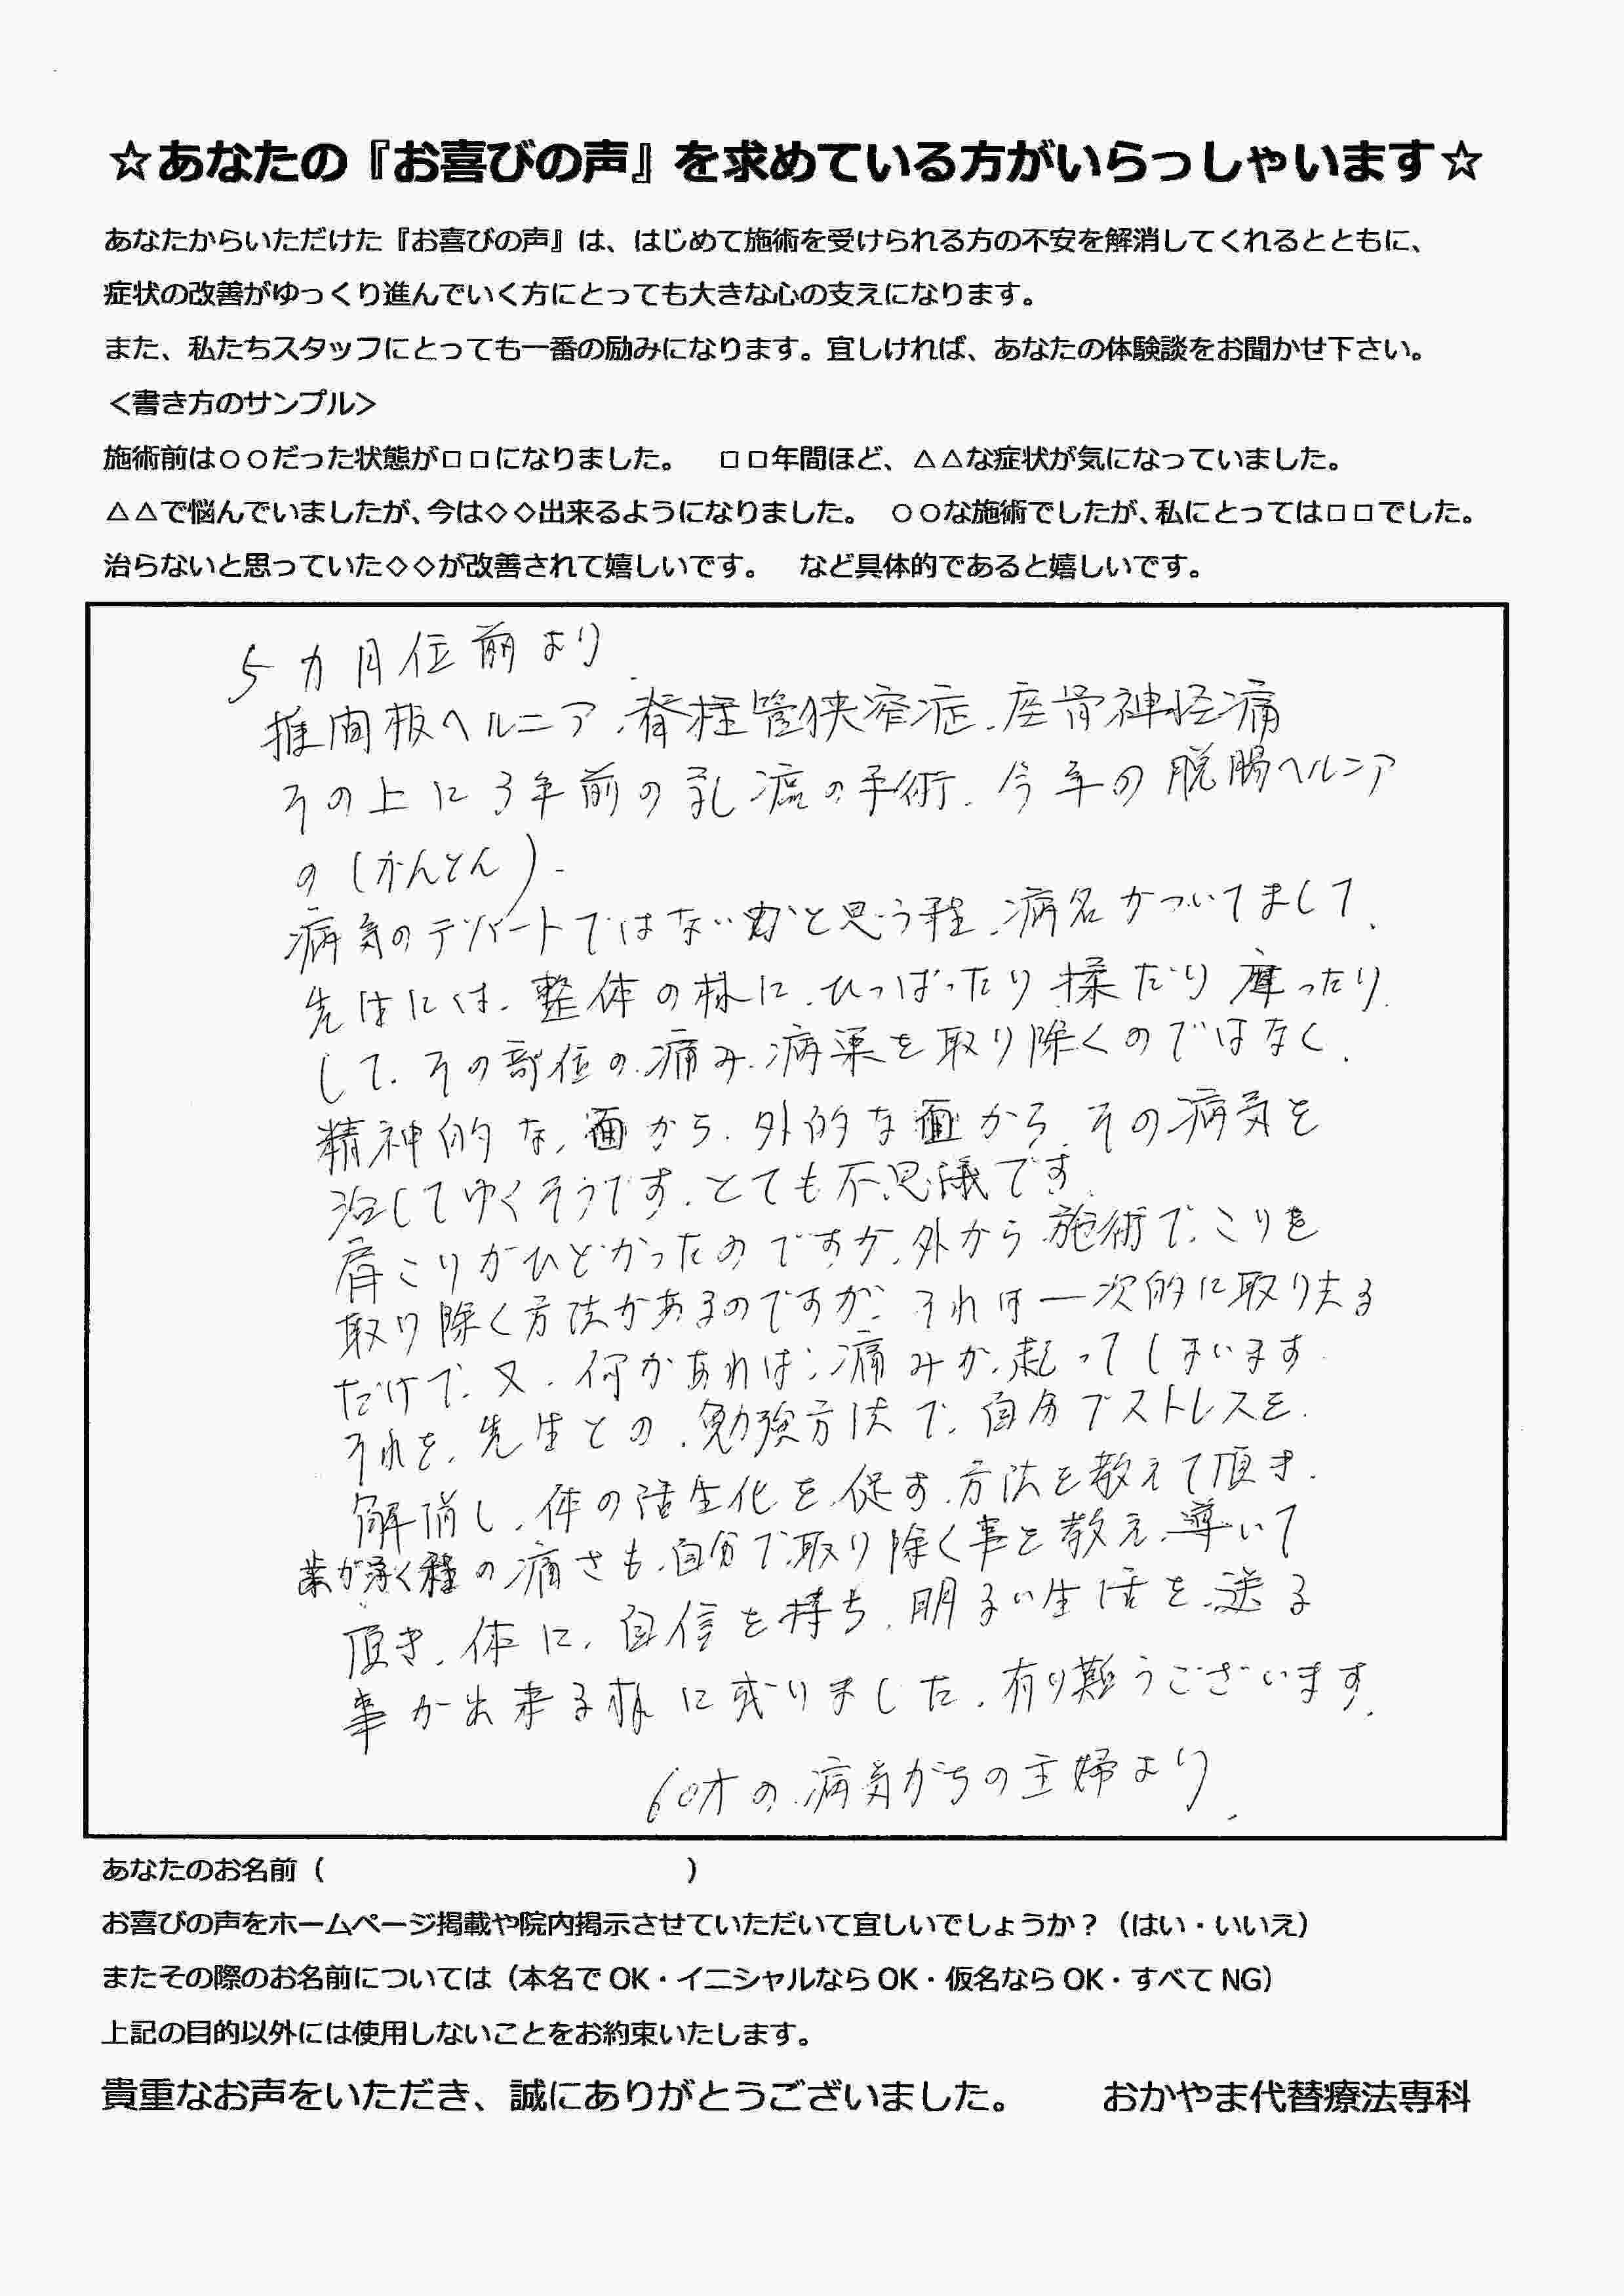 ☆あなたの『お喜びの声』を求めている方がいらっしゃいます☆
あなたからいただけた『お喜びの声』は、はじめて施術を受けられる方の不安を解消してくれるとともに、
症状の改善がゆっくり進んでいく方にとっても大きな心の支えになります。
また、私たちスタッフにとっても一番の励みになります。宜しければ、あなたの体験談をお聞かせ下さい。
＜書き方のサンプル＞
施術前は○○だった状態が□□になりました。　□□年間ほど、△△な症状が気になっていました。
△△で悩んでいましたが、今は◇◇出来るようになりました。　○○な施術でしたが、私にとっては□□でした。
治らないと思っていた◇◇が改善されて嬉しいです。　など具体的であると嬉しいです。
5カ月位前より
椎間板ヘルニア、脊柱管狭窄症、座骨神経痛
その上に3年前の乳癌の手術、今年の脱腸ヘルニア
の(かんとん)、
病気のデパートではないかと思う程、病名がついてまして、
先生には、整体の様に、ひっぱったり揉だり摩ったり
して、その部位の痛み、病巣を取り除くのではなく、
精神的な、面から、外的な面から、その病気を
治してゆくそうです。とても不思議です。
肩こりがひどかったのですが、外から施術で、こりを
取り除く方法があるのですが、それは一次的に取り去る
だけで、又、何かあれば、痛みが、起ってしまいます
それを、先生との、勉強方法で、自分でストレスを、
解消し、体の活生化を、促す、方法を教えて頂き、
歯が浮く種の痛さも、自分で取り除く事を教え、導いて
頂き、体に、自信を持ち、明るい生活を、送る
事が出来る様に成りました。有り難うございます。
60才の、病気がちの主婦より、
あなたのお名前（　　　　　　　　　　　　　）
お喜びの声をホームページ掲載や院内掲示させていただいて宜しいでしょうか？（はい・いいえ）
またその際のお名前については（本名で OK・イニシャルなら OK・仮名なら OK・すべて NG）
上記の目的以外には使用しないことをお約束いたします。
貴重なお声をいただき、誠にありがとうございました。　　おかやま代替療法専科